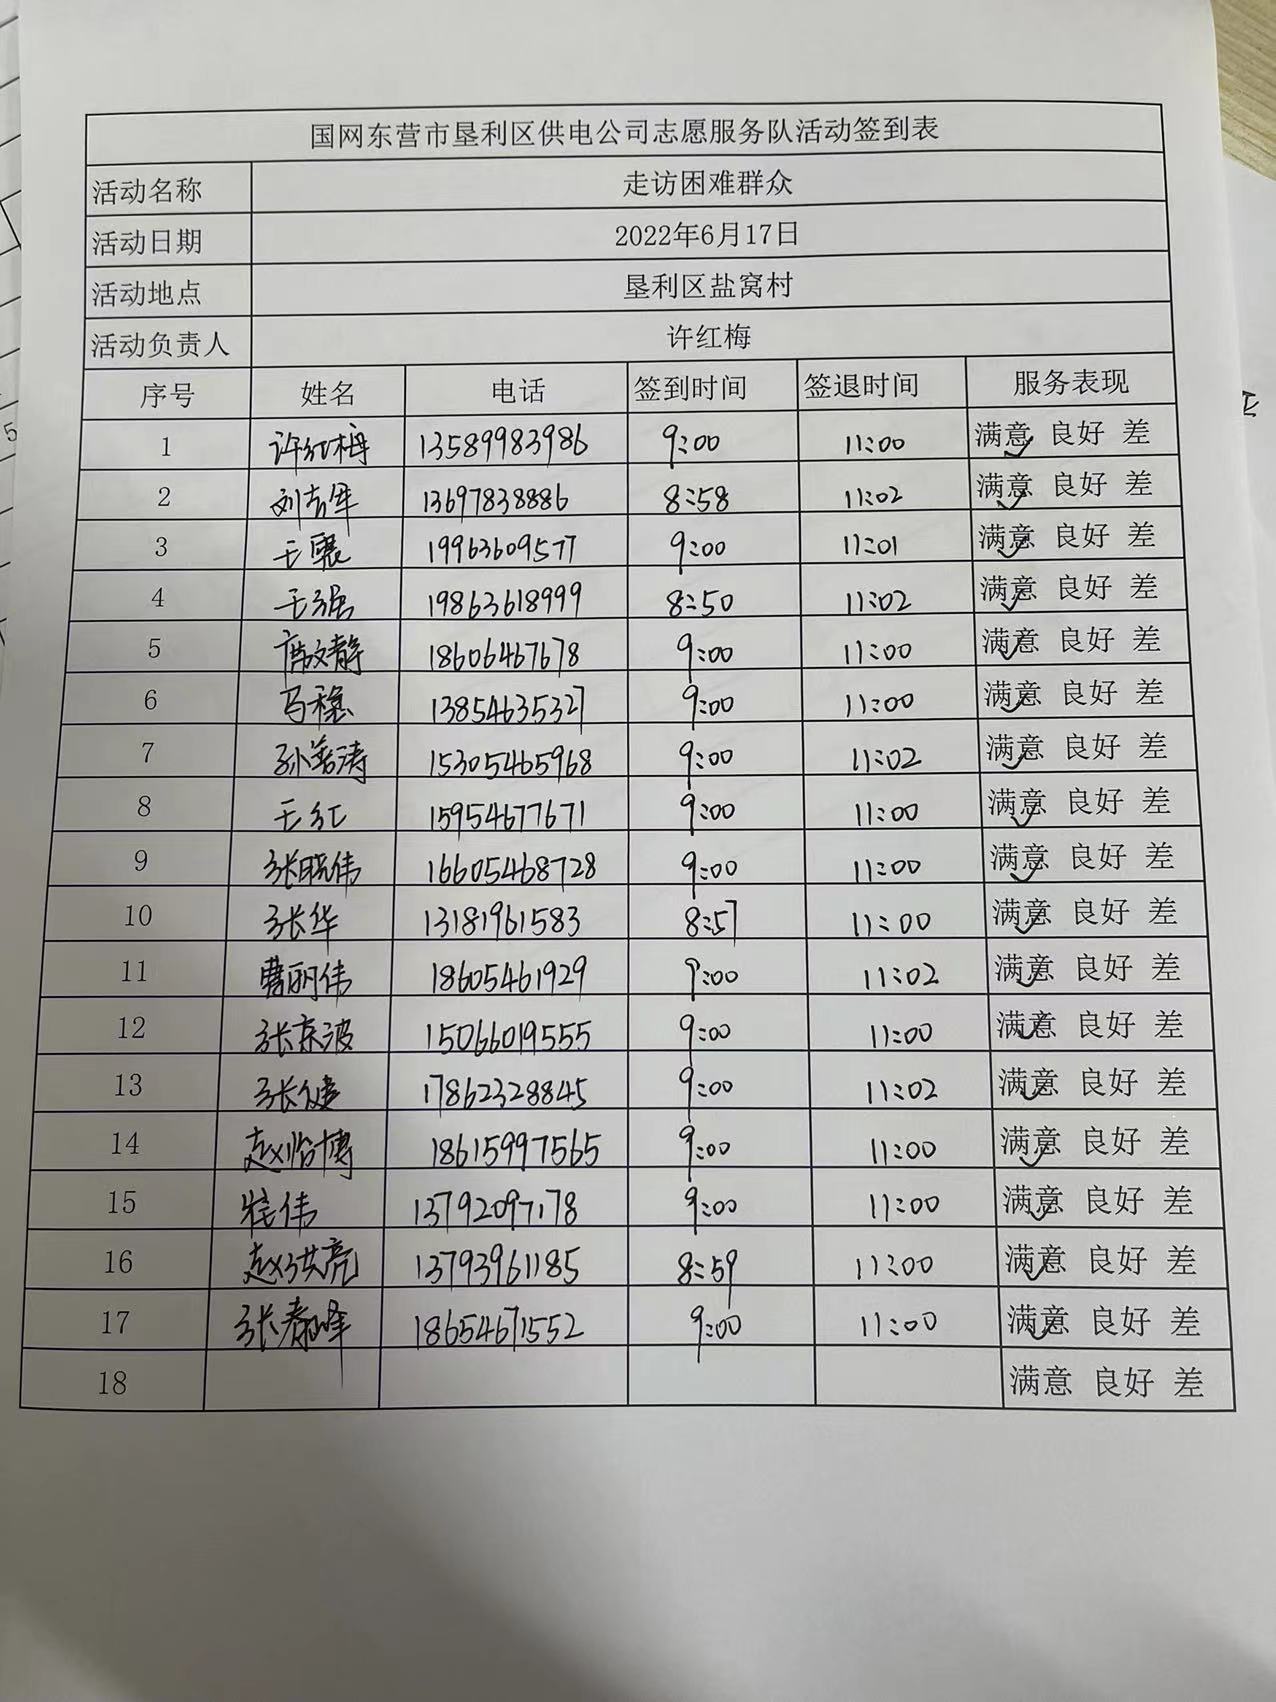 国网东营市垦利区供电公司志愿服务队活动签到表
活动名称 走访困难群众
活动日期 2022年6月17日
活动地点 垦利区盐窝村
活动负责人 许红梅
序号 姓名 电话 签到时间 签退时间 服务表现
1 许红梅 13589983986 9:00 11:00 满意 良好 差
2 刘吉军 13697838886 8:58 11:02 满意 良好 差
3 王 19963609577 9:00 11:01 满意 良好 差
4 王强 19863618999 8:50 11:02 满意 良好 差
5 文静 18606467678 9:00 11:00 满意 良好 差
6 马稳 13854635327 9:00 11:00 满意 良好 差
7 孙善涛 15305465968 9:00 11:02 满意 良好 差
8 王红 15954677671 9:00 11:00 满意 良好 差
9 张晓伟 16605468728 9:00 11:00 满意 良好 差
10 张华 13181961583 8:57 11:00 满意 良好 差
11 曹丽伟 18605461929 9:00 11:02 满意 良好 差
12 张东波 15066019555 9:00 11:00 满意 良好 差
13 张健 17862328845 9:00 11:02 满意 良好 差
14 赵怡博 18615997565 9:00 11:00 满意 良好 差
15 伟 13792097178 9:00 11:00 满意 良好 差
16 赵洪亮 13793961185 8:59 11:00 满意 良好 差
17 张春峰 18654671552 9:00 11:00 满意 良好 差
18 满意 良好 差